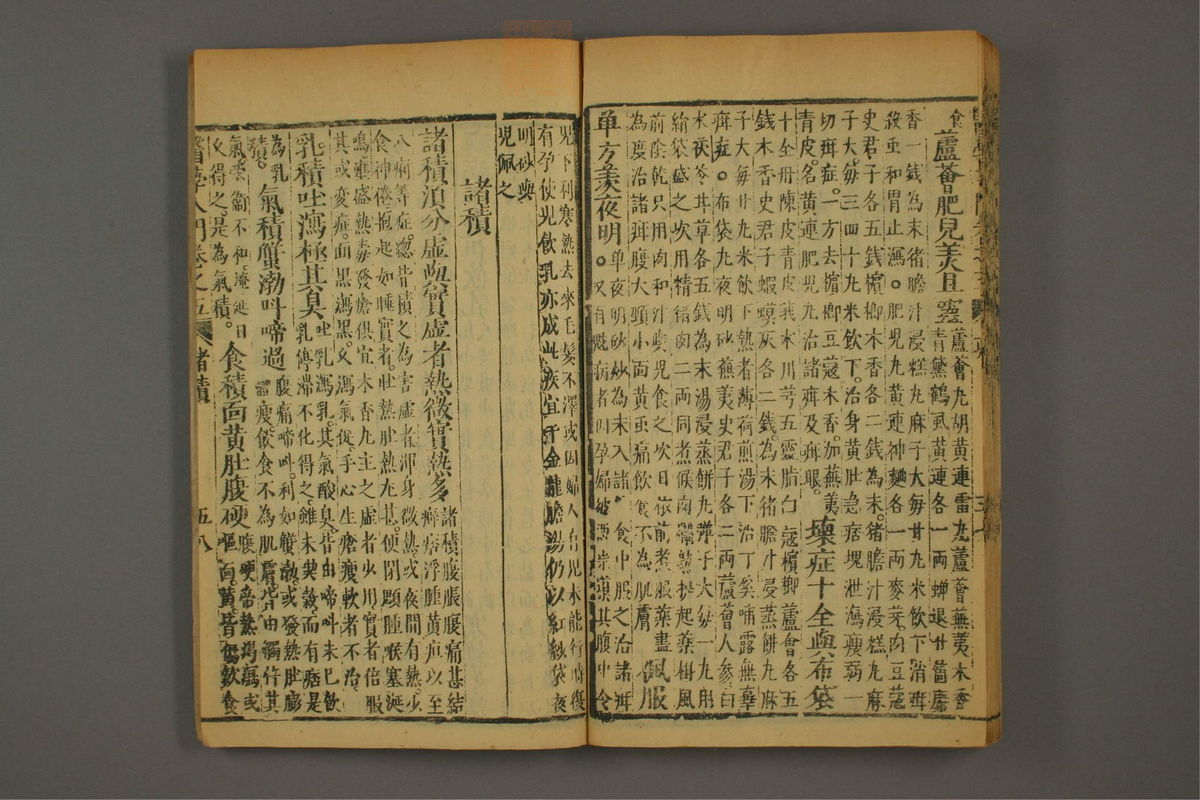 食蘆薈肥兒美且靈蘆薈丸胡黃連雷丸蘆薈蕪荑木香
青黛鶴虱黃連各一兩蟬退廿箇麝
香一錢為末猪膽汁浸糕丸麻子大每廿丸米飲下消疳
殺虫和胃止瀉。肥兒丸黃連神麯各一兩麥芽肉豆蔻
史君子各五錢檳榔木香各二錢為末猪膽汁浸糕丸麻
子大每三四十丸米飲下治身黃肚急痞塊泄瀉瘦弱一
切疳症一方去檳榔豆蔻木香加蕪荑
青皮名黃連肥兒丸治諸疳及疳眼。壞症十全與布袋
十全丹陳皮青皮莪朮川芎五靈脂白蔻檳榔蘆會各五
錢木香史君子蝦蟆灰各二錢為末猪膽汁浸蒸餅丸麻
子大每廿丸米飲下熱者薄荷煎湯下治丁奚哺露無辜
疳症。布袋丸夜明砂蕪荑史君子各二兩蘆薈人參白
朮茯苓甘草各五錢為末湯浸蒸餅丸彈子大每一丸用
絹袋盛之次用精猪肉二兩同煮候肉爛熟提起藥掛風
前陰乾只用肉和汁與兒食之次日依前煮服藥盡
為度治諸疳腹大頸小面黃虫痛飲食不為肌膚佩服
單方羨夜明。單夜明砂炒為末入諸食中服之治諸疳
又有魃病者因孕婦被惡祟其腹中令
兒下利寒熱去來毛髮不澤或因婦人有兒未能行時復
有孕使兒飲乳亦成此疾宜千金龍膽湯仍以紅紗袋夜
明砂與
兒佩之
諸積
諸積須分虛與實虛者熱微實熱多諸積腹脹腹痛甚結
癖痞浮腫黃疸以至
八痢等症忽皆積之為害虛者渾身微熱或夜間有熱少
食神倦抱起如睡實者肚熱肚熱尤甚便閉顋腫喉塞涎
鳴雍盛熱毒發瘡俱宜木香丸主之虛者少川實者倍服
其或変症面黑瀉黑久瀉氣促手心生瘡瘦軟者不治
乳積吐瀉極其臭吐乳瀉乳其氣酸臭皆由啼叫未已飲
乳停滯不化得之雖未喫穀而有痞是
為乳
積。氣積蟹渤叫啼過腹痛啼叫利如蟹渤或發熱肚膨
瘦飲食不為肌膚皆由觸忤其
氣榮衛不和淹延日
久得之是為氣積。食積面黃肚腹硬面黃皆傷飲食
醫學入門卷之五 諸積 五八